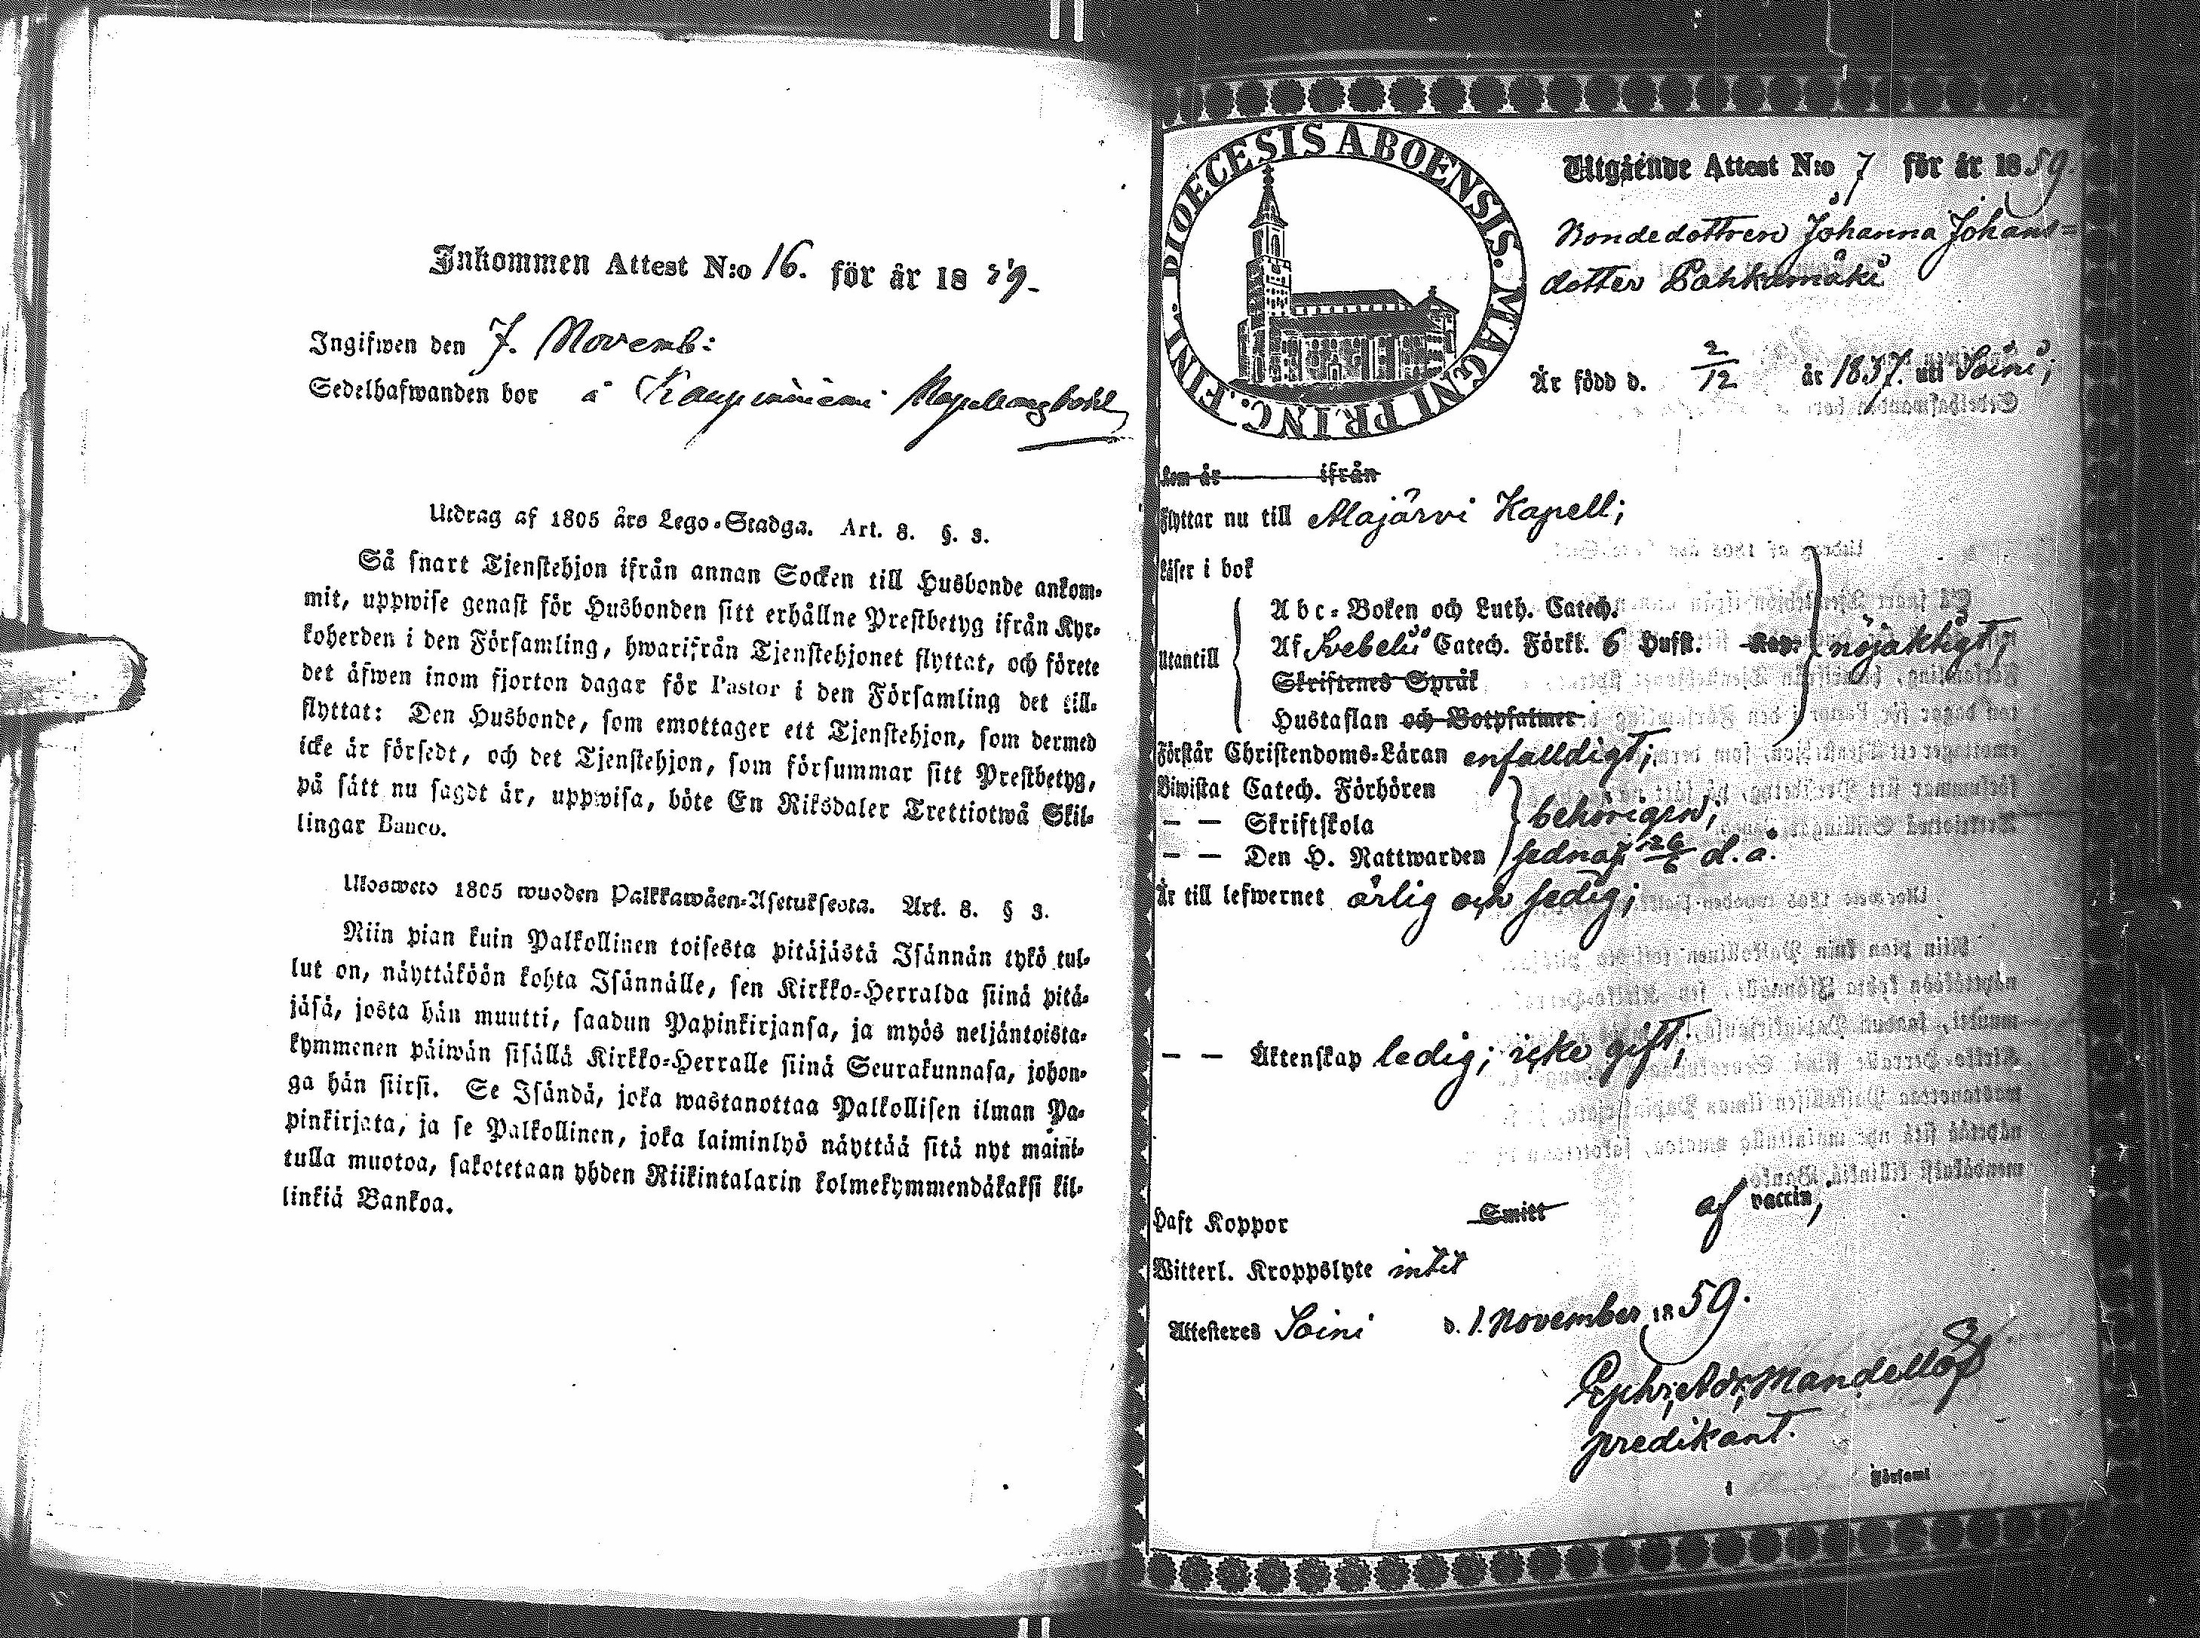 Inkommen Attest N:o 16. för år 18 59.
Ingifwen den 7. Novemb:
Sedelhafwanden bor å
Utdrag af 1805 års Lego-Stadga. Art. 8. §. 3.
Så snart Tjenstehjon ifrån annan Socken till Husbonde ankom-
mit, uppwise genast för Husbonden sitt erhållne Prestbetyg ifrån Kyr-
koherden i den Församling, hwarifrån Tjenstehjonet flyttat, och förete
det äfwen inom fjorton dagar för Pastor i den Församling det till-
flyttat: Den Husbonde, som emottager ett Tjenstehjon, som dermed
icke är försedt, och det Tjenstehjon, som försummar sitt Prestbetyg,
på sätt nu sagdt är, uppwisa, böte En Riksdaler Trettiotwå Skil-
lingar Banco.
Ulosweto 1805 wuoden Palkkawäen-Asetuksesta. Art. 8. § 3.
Niin pian kuin Palkollinen toisesta pitäjästä Isännän tykö tul-
lut on, näyttäköön kohta Isännälle, sen Kirkko-Herralda siinä pitä-
jäsä, josta hän muutti, saadun Papinkirjansa, ja myös neljäntoista-
kymmenen päiwän sisällä Kirkko-Herralle siinä Seurakunnasa, johon-
ga hän siirsi. Se Isändä, joka wastanottaa Palkollisen ilman Pa-
pinkirjata, ja se Palkollinen, joka laiminlyö näyttää sitä nyt maini-
tulla muotoa, sakotetaan yhden Riikintalarin kolmekymmendäkaksi kil-
linkiä Bankoa.
DIOECESIS ABOENSIS. MAGNI PRINC. FINL.
Utgående Attest N:o 7 för år 1859.
Bondedottren Johanna Johans=
dotter Pahkamäki
Är född d. 2/12 år 1837. uti Soini;
kom år ifrån
flyttar nu till Alajärvi Kapell;
Läser i bok
Abc-Boken och Luth. Catech.
Utantill Af Svebelii Catech. Förkl. 6 Hufst. Kap. nöjaktigt;
Skriftenes Språk
Hustaflan och Botpsalmer
Förstår Christendoms-Läran enfalldigt;
Biwistat Catech. Förhören
— — Skriftskola behörigen;
— — Den H. Nattwarden sednast 26/6 d. å.
Är till lefwernet ärlig och sedig;
— — Äktenskap ledig; icke gift;
Haft Koppor Smitt af vaccin;
Witterl. Kroppslyte intet
Attesteres Soini d. 1. November 1859.
Ephr. Adr. Mandellöf
predikant.
i Församl